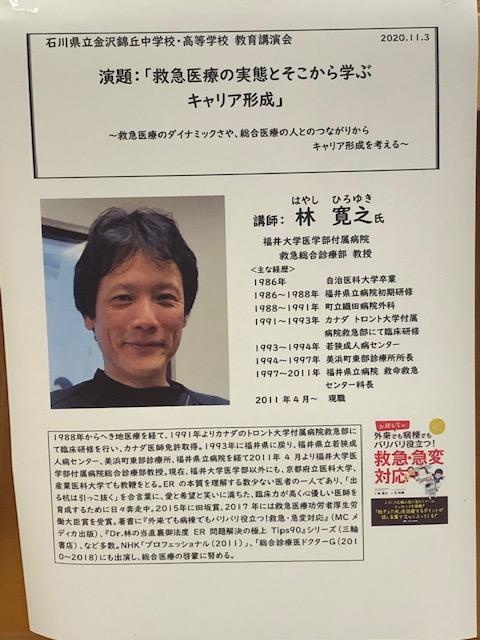 石川県立金沢錦丘中学校・高等学校 教育講演会 2020.11.3
演題:「救急医療の実態とそこから学ぶ
キャリア形成」
～救急医療のダイナミックさや、総合医療の人とのつながりから
キャリア形成を考える～
はやし ひろゆき
講師: 林 寛之氏
福井大学医学部付属病院
救急総合診療部 教授
<主な経歴>
1986年 自治医科大学卒業
1986～1988年 福井県立病院初期研修
1988～1991年 町立織田病院外科
1991～1993年 カナダ トロント大学付属
病院救急部にて臨床研修
1993～1994年 若狭成人病センター
1994～1997年 美浜町東部診療所所長
1997～2011年 福井県立病院 救命救急
センター科長
2011年4月～ 現職
1988年からへき地医療を経て、1991年よりカナダのトロント大学付属病院救急部に
て臨床研修を行い、カナダ医師免許取得。1993年に福井県に戻り、福井県立若狭成
人病センター、美浜町東部診療所、福井県立病院を経て2011年4月より福井大学医
学部付属病院総合診療部教授。現在、福井大学医学部以外にも、京都府立医科大学、
産業医科大学でも教鞭をとる。ERの本質を理解する数少ない医者の一人であり、「出
る杭は引っこ抜く」を合言葉に、愛と希望と笑いに満ちた、臨床力が高く心優しい医師を
育成するために日々奔走中。2015年に田坂賞、2017年には救急医療功労者厚生労
働大臣賞を受賞。著書に『外来でも病棟でもバリバリ役立つ!救急・急変対応』(MCメ
ディカ出版)、『Dr.林の当直裏御法度 ER問題解決の極上Tips90』シリーズ(三輪
書店)、など多数。NHK「プロフェッショナル(2011)」、「総合診療医ドクターG(201
0～2018)」にも出演し、総合医療の啓蒙に努める。
外来でも病棟でも
バリバリ役立つ!
救急・急変
対応